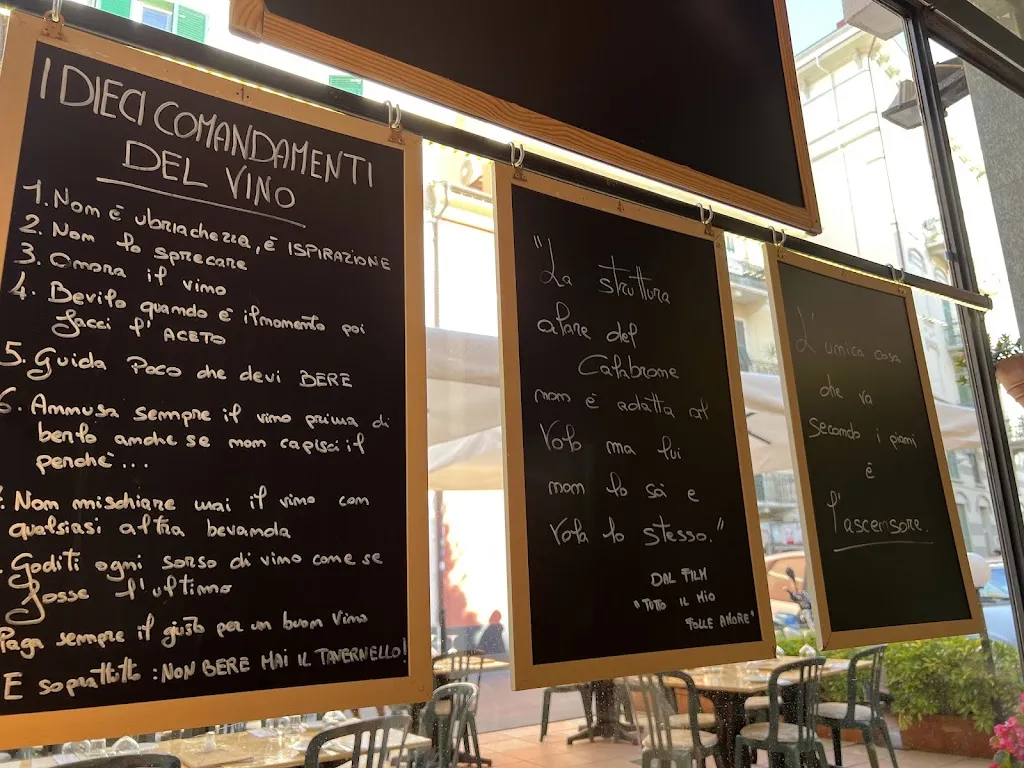 I DIECI COMANDAMENTI
DEL VINO
1. Non è ubriachezza, è ISPIRAZIONE
2. Non lo sprecare
3. Onora il vino
4. Bevilo quando è il momento poi
facci l'ACETO
5. Guida Poco che devi BERE
6. Annusa sempre il vino prima di
berlo anche se non capisci il
perchè...
Non mischiare mai il vino con
qualsiasi altra bevanda
Goditi ogni sorso di vino come se
fosse l'ultimo
Paga sempre il giusto per un buon Vino
E soprattutto: NON BERE MAI IL TAVERNELLO!
"La struttura
alare del
Calabrone
non è adatta al
Volo ma lui
non lo sà e
Vola lo stesso."
DAL FILM
"TUTTO IL MIO
FOLLE AMORE"
L'unica cosa
che va
secondo i piani
è
l'ascensore.